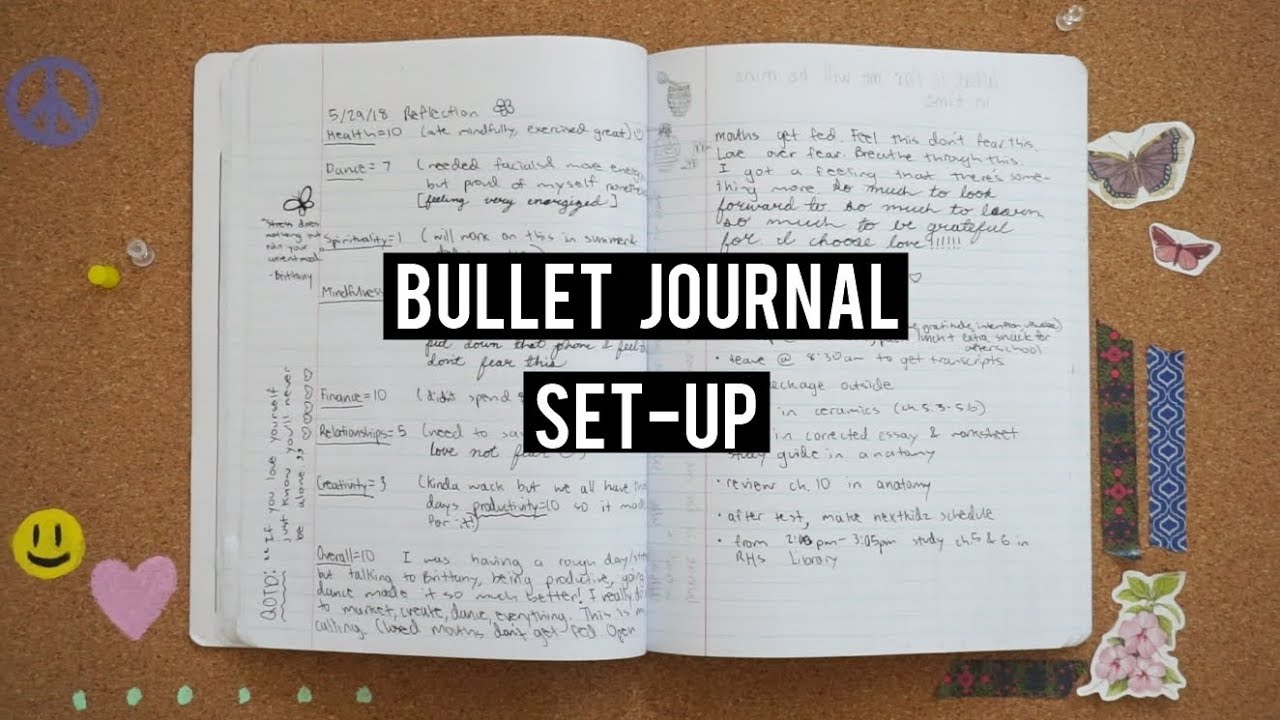 BULLET JOURNAL
SET-UP
5/29/18 Reflection
Health=10 (ate mindfully, exercised great)
Dance=7 (needed facials & more energy
but proud of myself
[feeling very energized]
Spirituality=1 (will work on this in summer
"Stress does
nothing but
ruin your
current mood."
-Brittany
Mindfulness
put down that phone & feel
don't fear this
Finance=10 (didn't spend
Relationships=5 (need to
love not fear
Creativity=3 (kinda wack but we all have
days productivity=10 so it made
for it)
QOTD: "If you love yourself
just know you'll never
be alone."
Overall=10 I was having a rough day/
but talking to Brittany, being productive, going
dance made it so much better! I really
to market, create, dance, everything. This is
calling. Closed mouths don't get fed. Open
mouths get fed. Feel this don't fear this.
Love over fear. Breathe through this.
I got a feeling that there's some-
thing more. So much to look
forward to. So much to learn
so much to be grateful
for. I choose love!!!!!!
gratitude, intention,
lunch & extra snack for
afterschool
• leave @ 8:30am to get transcripts
outside
in ceramics (ch 5.3-5.6)
in corrected essay & worksheet
study guide in anatomy
• review ch. 10 in anatomy
• after test, make nextkidz schedule
• from 2:10pm-3:05pm study ch 5 & 6 in
RHS Library